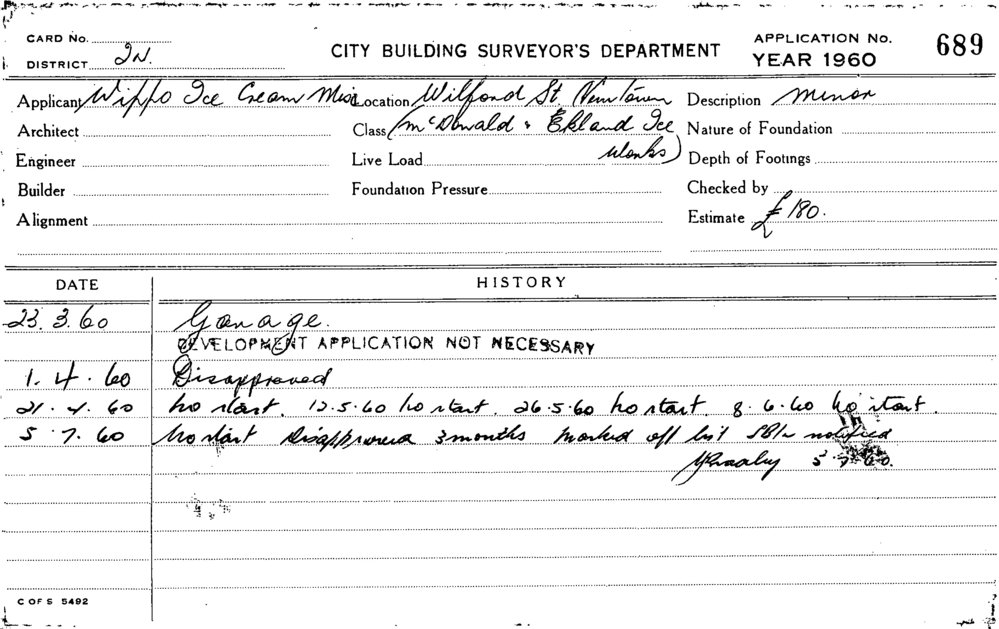 CARD No.
DISTRICT JN.
CITY BUILDING SURVEYOR'S DEPARTMENT
APPLICATION No. 689
YEAR 1960
Applicant Wippo Ice Cream Location Wilford St. Newtown Description Minor
Architect Class (McDonald & Ekland Ice Nature of Foundation
Engineer Live Load Works) Depth of Footings
Builder Foundation Pressure Checked by
Alignment Estimate £180.
DATE HISTORY
23.3.60 Garage.
DEVELOPMENT APPLICATION NOT NECESSARY
1.4.60 Disapproved
21.4.60 No start. 12.5.60 No start. 26.5.60 No start. 8.6.60 No start.
5.7.60 No start Disapproved 3 months Marked off list notified
5.7.60.
C OF S 5492